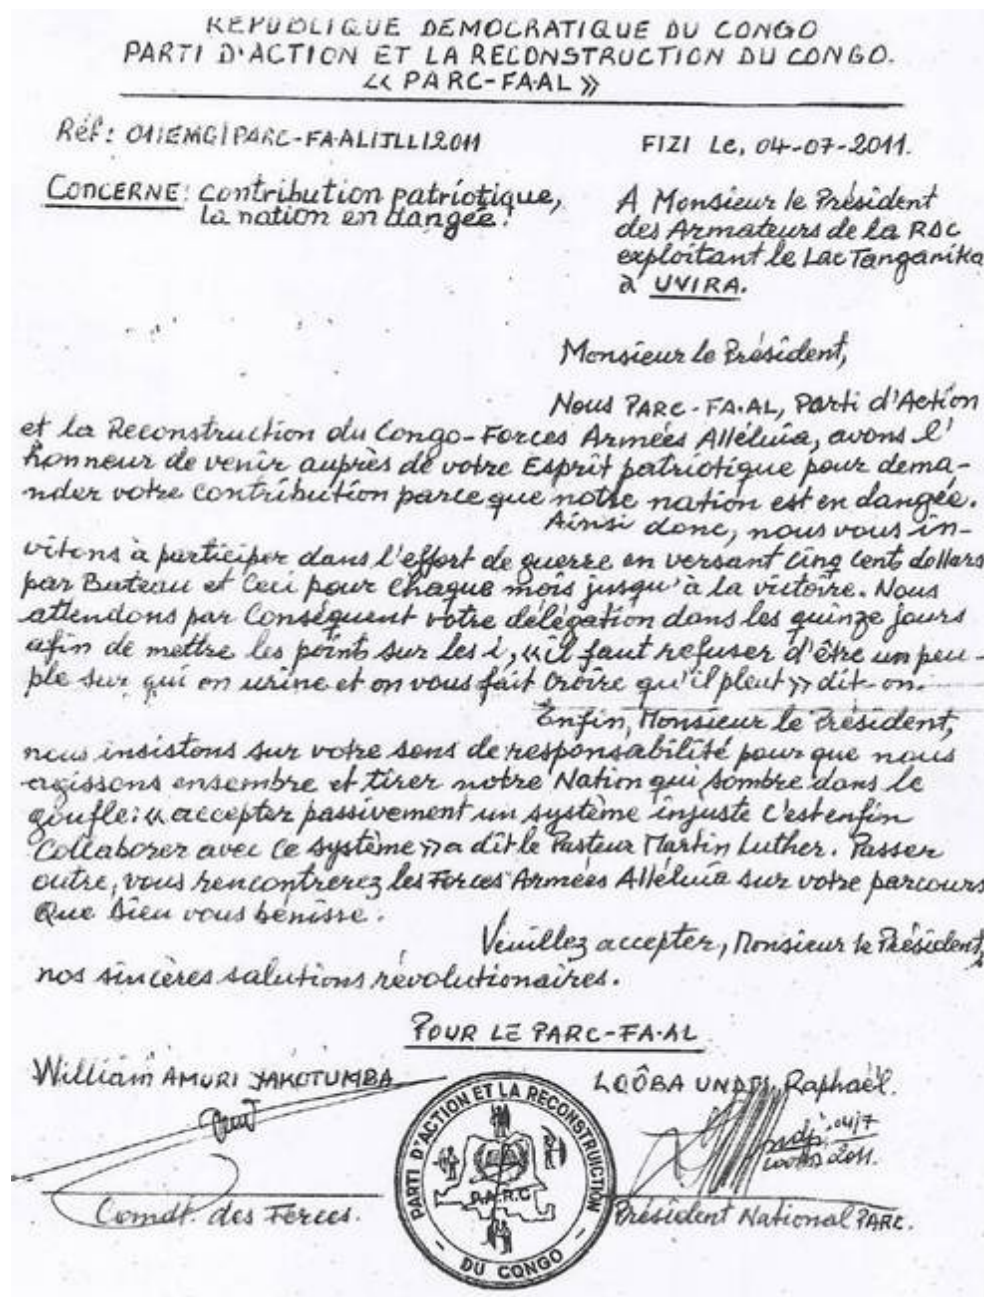 REPUBLIQUE DEMOCRATIQUE DU CONGO
PARTI D'ACTION ET LA RECONSTRUCTION DU CONGO.
<< PARC-FA.AL >>
Réf: 011EMG/PARC-FA-AL/JLL/2011
FIZI Le, 04-07-2011.
CONCERNE: Contribution patriotique,
la nation en dangée.
A Monsieur le Président
des Armateurs de la RDC
exploitant le Lac Tanganika
à UVIRA.
Monsieur le Président,
Nous PARC-FA.AL, Parti d'Action
et la Reconstruction du Congo-Forces Armées Alléluia, avons l'
honneur de venir auprès de votre Esprit patriotique pour dema-
nder votre contribution parce que notre nation est en dangée.
Ainsi donc, nous vous in-
vitons à participer dans l'effort de guerre en versant Cinq Cent dollars
par Bateau et Ceci pour Chaque mois jusqu'à la victoire. Nous
attendons par Conséquent votre délégation dans les quinze jours
afin de mettre les point sur les i, << il faut refuser d'être un peu-
ple sur qui on urine et on vous fait Croire qu'il pleut >> dit-on.
Enfin, Monsieur le Président,
nous insistons sur votre sens de responsabilité pour que nous
agissons ensembre et tirer notre Nation qui sombre dans le
goufle: << accepter passivement un système injuste C'est enfin
Collaborer avec Ce système >> a dit le Pasteur Martin Luther. Passer
outre, vous rencontrerez les Forces Armées Alléluia sur votre parcours
Que Dieu vous bénisse.
Veuillez accepter, Monsieur le Président,
nos sincères salutions révolutionaires.
POUR LE PARC-FA.AL
William AMURI YAKOTUMBA
LOÔBA UNDJI Raphaël.
04/7
2011.
Comdt. des Forces.
Président National PARC.
PARTI D'ACTION ET LA RECONSTRUICTION
P.A.R.C
DU CONGO